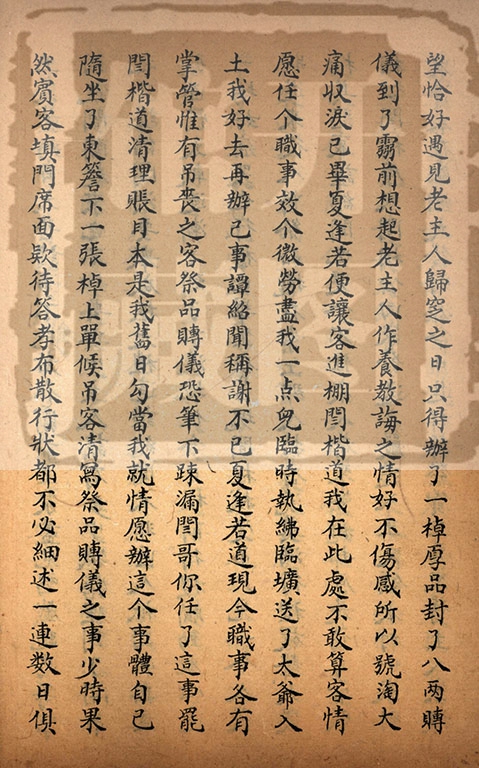 望恰好遇見老主人歸窆之日只得辦了一棹厚品封了八两賻
儀到了靈前想起老主人作養教誨之情好不傷感所以號淘大
痛収淚已畢夏逢若便讓客進棚閆楷道我在此處不敢算客情
愿任个職事效个微勞盡我一点兒臨時執紼臨壙送了太爺入
土我好去再辦己事譚紹聞稱謝不已夏逢若道現今職事各有
掌管惟有吊喪之客祭品賻儀恐筆下踈漏閆哥你任了這事罷
閆楷道清理賬目本是我舊日勾當我就情愿辦這个事體自己
隨坐了東簷下一張棹上單候吊客清寫祭品賻儀之事少時果
然賓客填門席面欵待答孝布散行狀都不必細述一連数日俱